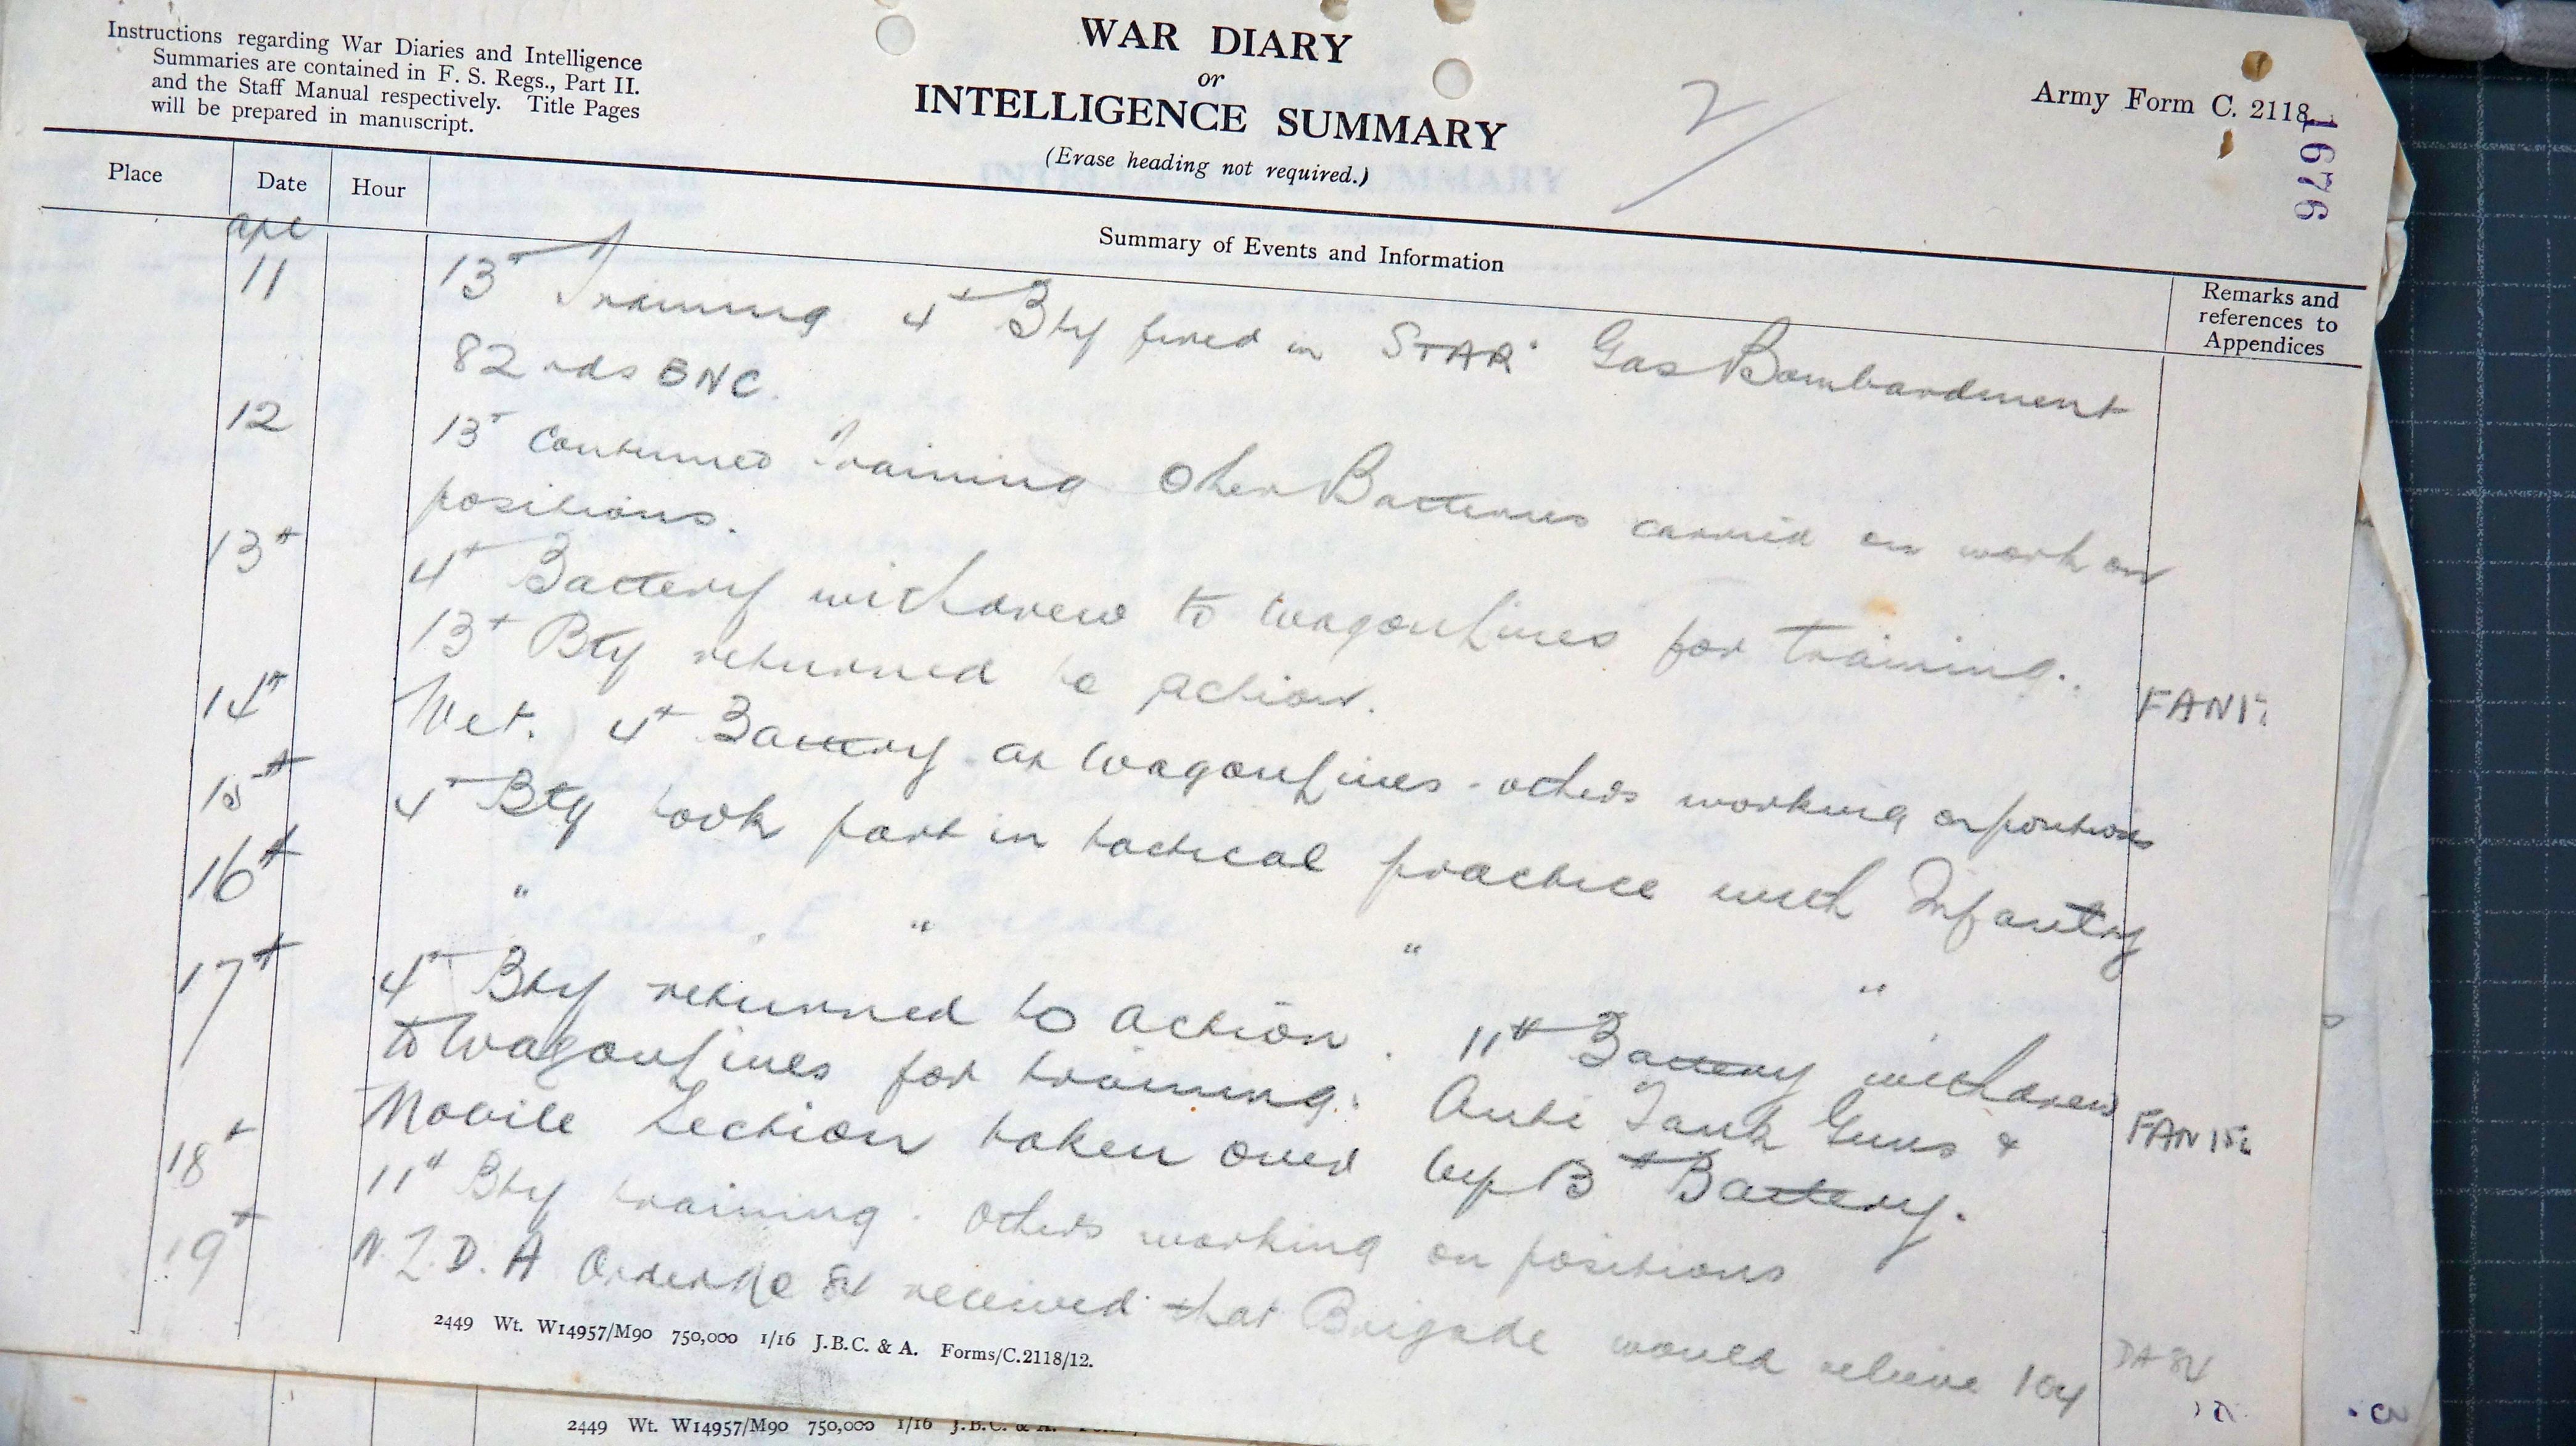 Instructions regarding War Diaries and Intelligence
Summaries are contained in F. S. Regs., Part II.
and the Staff Manual respectively. Title Pages
will be prepared in manuscript.
WAR DIARY
or
INTELLIGENCE SUMMARY
(Erase heading not required.)
2/
Army Form C. 2118.
1676
Place Date Hour Summary of Events and Information Remarks and references to Appendices
Apl
11 13th Training 4th Bty fired in STAR Gas Bombardment
82 rds BNC.
12 13th continued Training Other Batteries carried on work on
positions.
13th 4th Battery withdrew to Wagon Lines for training.
13th Bty returned to action. FAN
14th Wet. 4th Battery at Wagon Lines - others working on positions
15th 4th Bty took part in tactical practice with Infantry
16th " " " "
17th 4th Bty returned to action. 11th Battery withdrew
to Wagon Lines for training. Anti Tank Guns & FAN
Mobile Section taken over by 13th Battery.
18th 11th Bty training. Others working on positions
19th N.Z.D.A Order No 84 received that Brigade would relieve 104 DA 84
2449 Wt. W14957/M90 750,000 1/16 J.B.C. & A. Forms/C.2118/12.
2449 Wt. W14957/M90 750,000 1/16 J.B.C. & A.